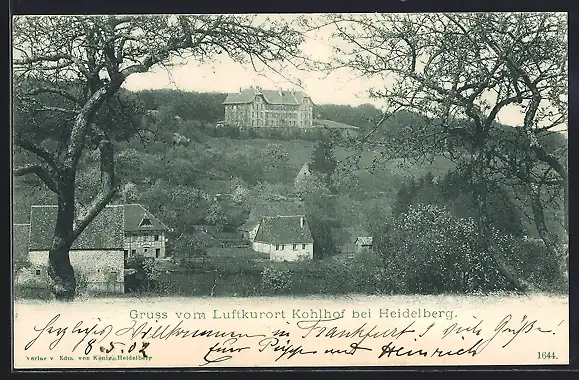 Gruss vom Luftkurort Kohlhof bei Heidelberg.
Herzlichs Willkommen in Frankfurt! viele Grüße!
8.5.02 für Pips und Heinrich
Verlag v. Edm. von König, Heidelberg
1644.